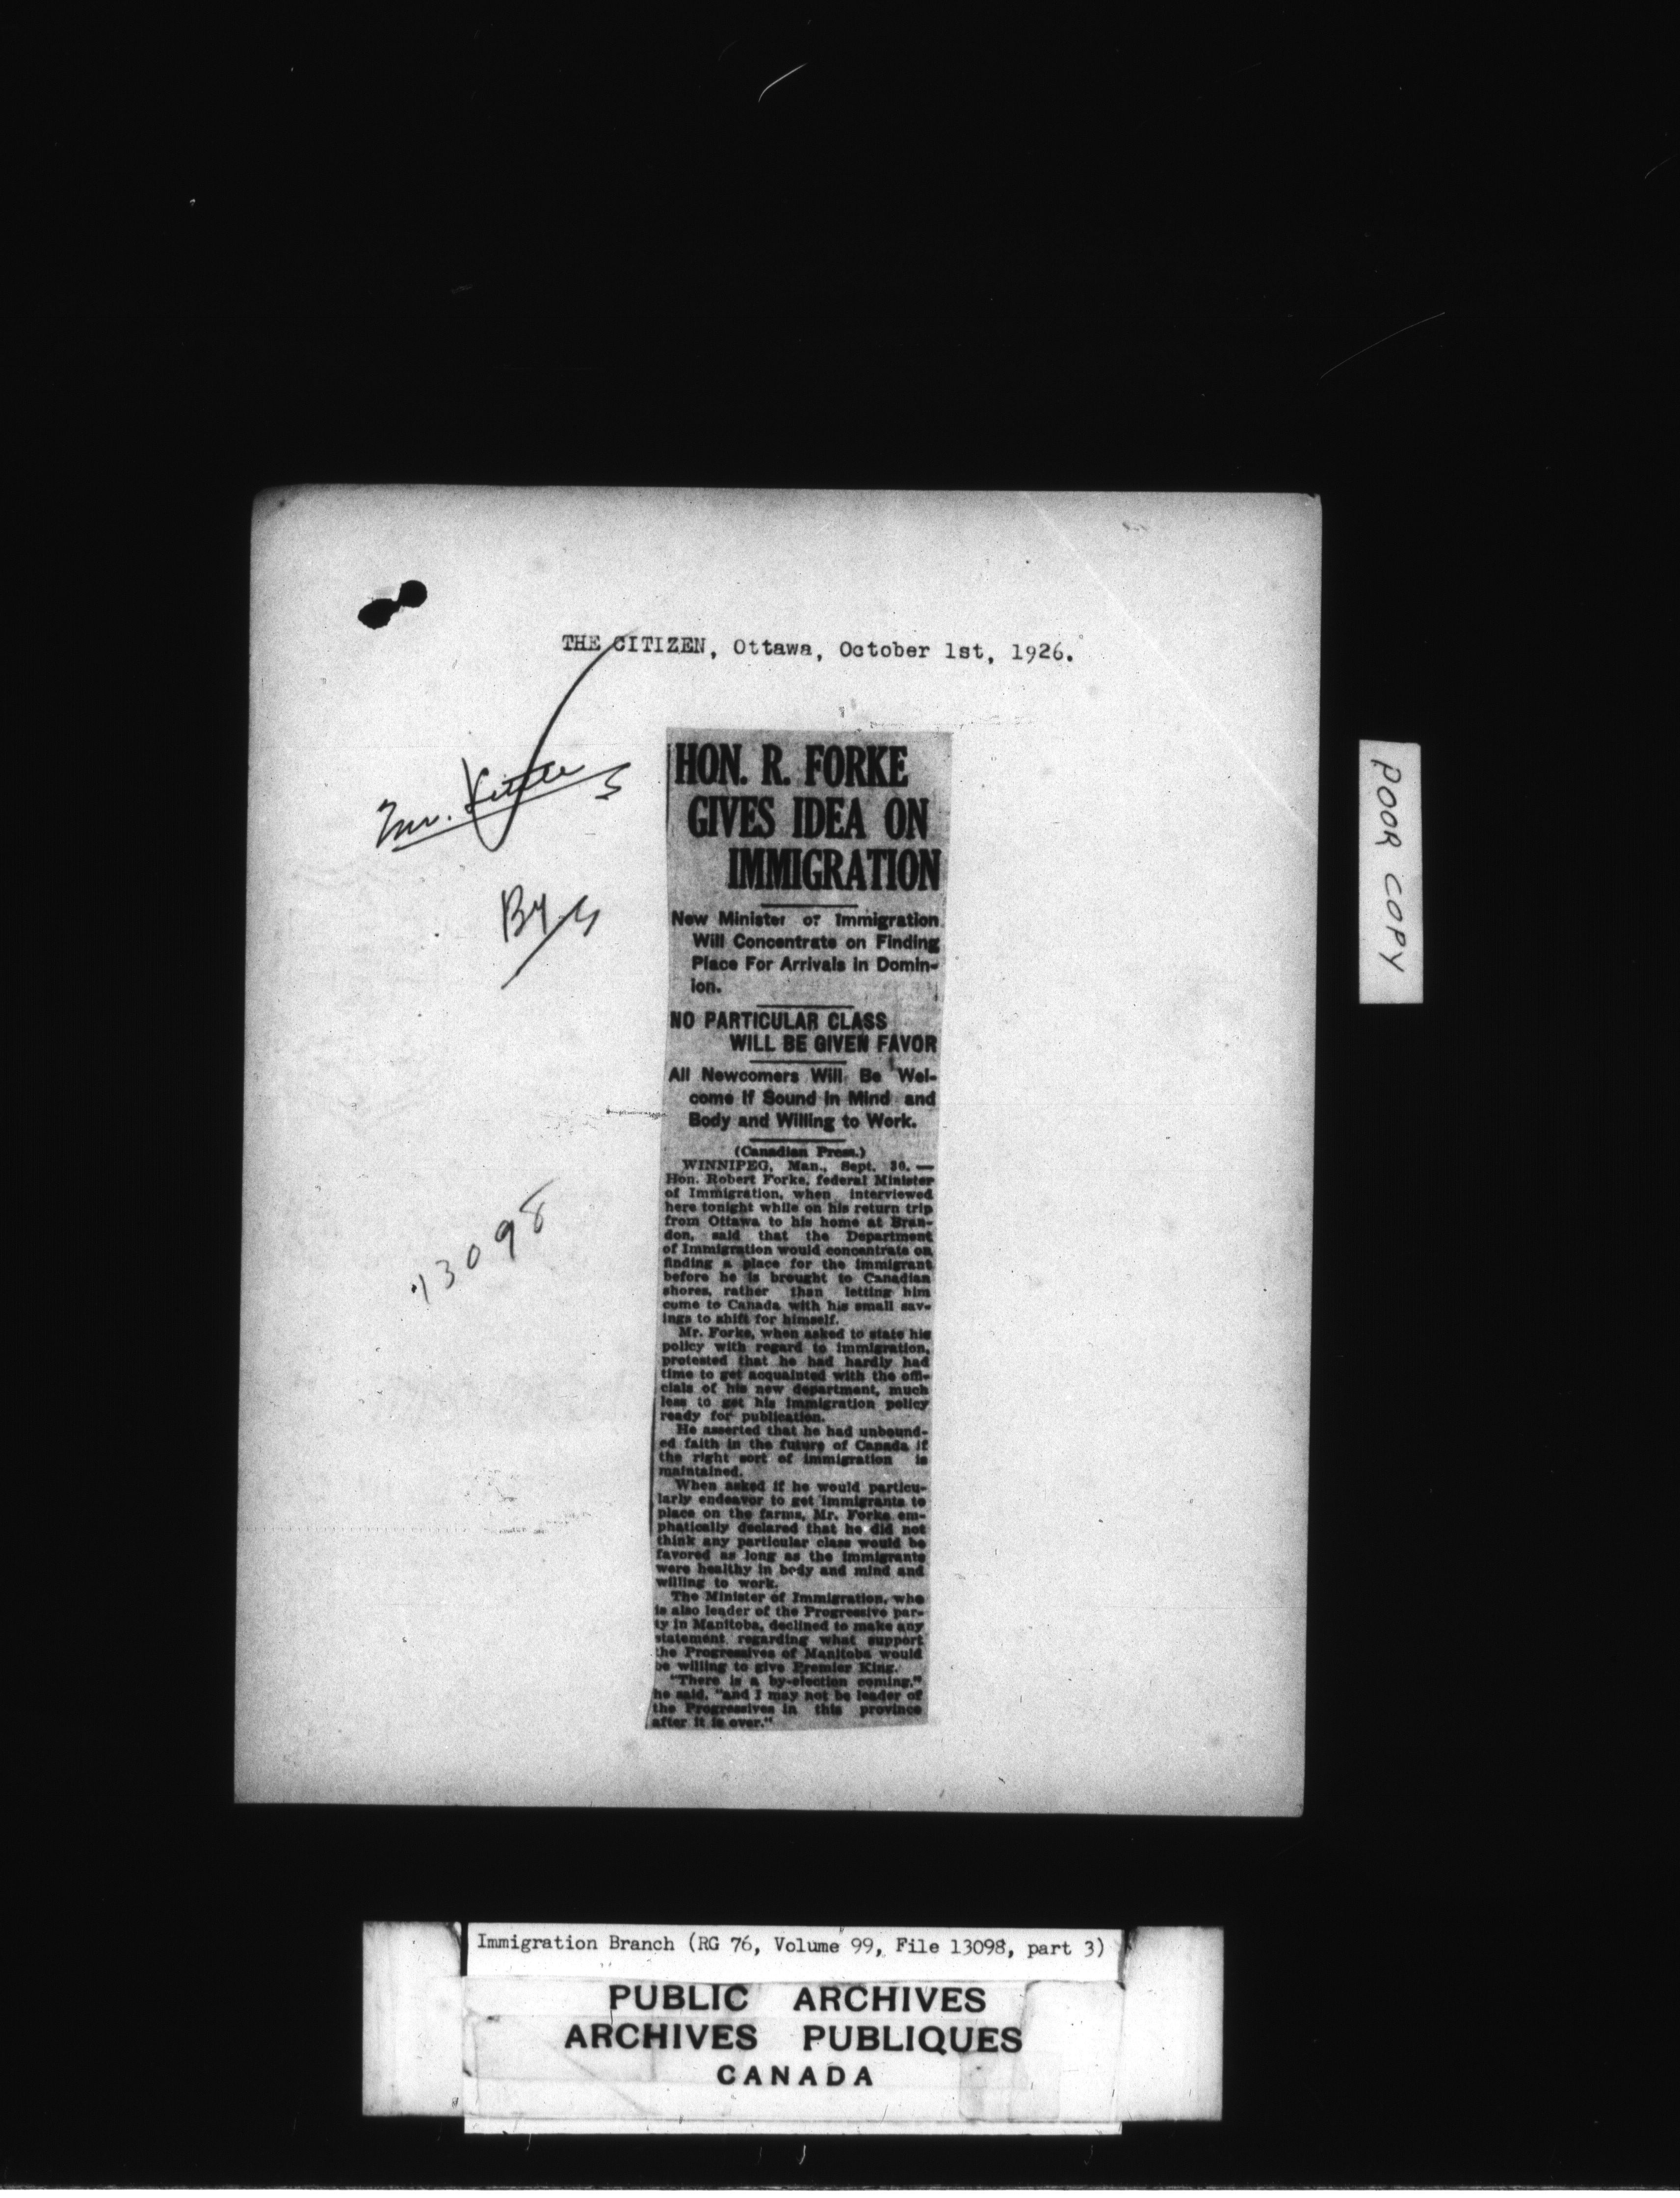 THE CITIZEN, Ottawa, October 1st, 1926.
Mr.
13098
HON. R. FORKE
GIVES IDEA ON
IMMIGRATION
New Minister of Immigration
Will Concentrate on Finding
Place For Arrivals in Domin-
ion.
NO PARTICULAR CLASS
WILL BE GIVEN FAVOR
All Newcomers Will Be Wel-
come If Sound in Mind and
Body and Willing to Work.
(Canadian Press.)
WINNIPEG, Man., Sept. 30. —
Hon. Robert Forke, federal Minister
of Immigration, when interviewed
here tonight while on his return trip
from Ottawa to his home at Bran-
don, said that the Department
of Immigration would concentrate on
finding a place for the immigrant
before he is brought to Canadian
shores, rather than letting him
come to Canada with his small sav-
ings to shift for himself.
Mr. Forke, when asked to state his
policy with regard to immigration,
protested that he had hardly had
time to get acquainted with the offi-
cials of his new department, much
less to get his immigration policy
ready for publication.
He asserted that he had unbound-
ed faith in the future of Canada if
the right sort of immigration is
maintained.
When asked if he would particu-
larly endeavor to get immigrants to
place on the farms, Mr. Forke em-
phatically declared that he did not
think any particular class would be
favored as long as the immigrants
were healthy in body and mind and
willing to work.
The Minister of Immigration, who
is also leader of the Progressive par-
ty in Manitoba, declined to make any
statement regarding what support
the Progressives of Manitoba would
be willing to give Premier King.
"There is a by-election coming,"
he said, "and I may not be leader of
the Progressives in this province
after it is over."
POOR COPY
Immigration Branch (RG 76, Volume 99, File 13098, part 3)
PUBLIC ARCHIVES
ARCHIVES PUBLIQUES
CANADA